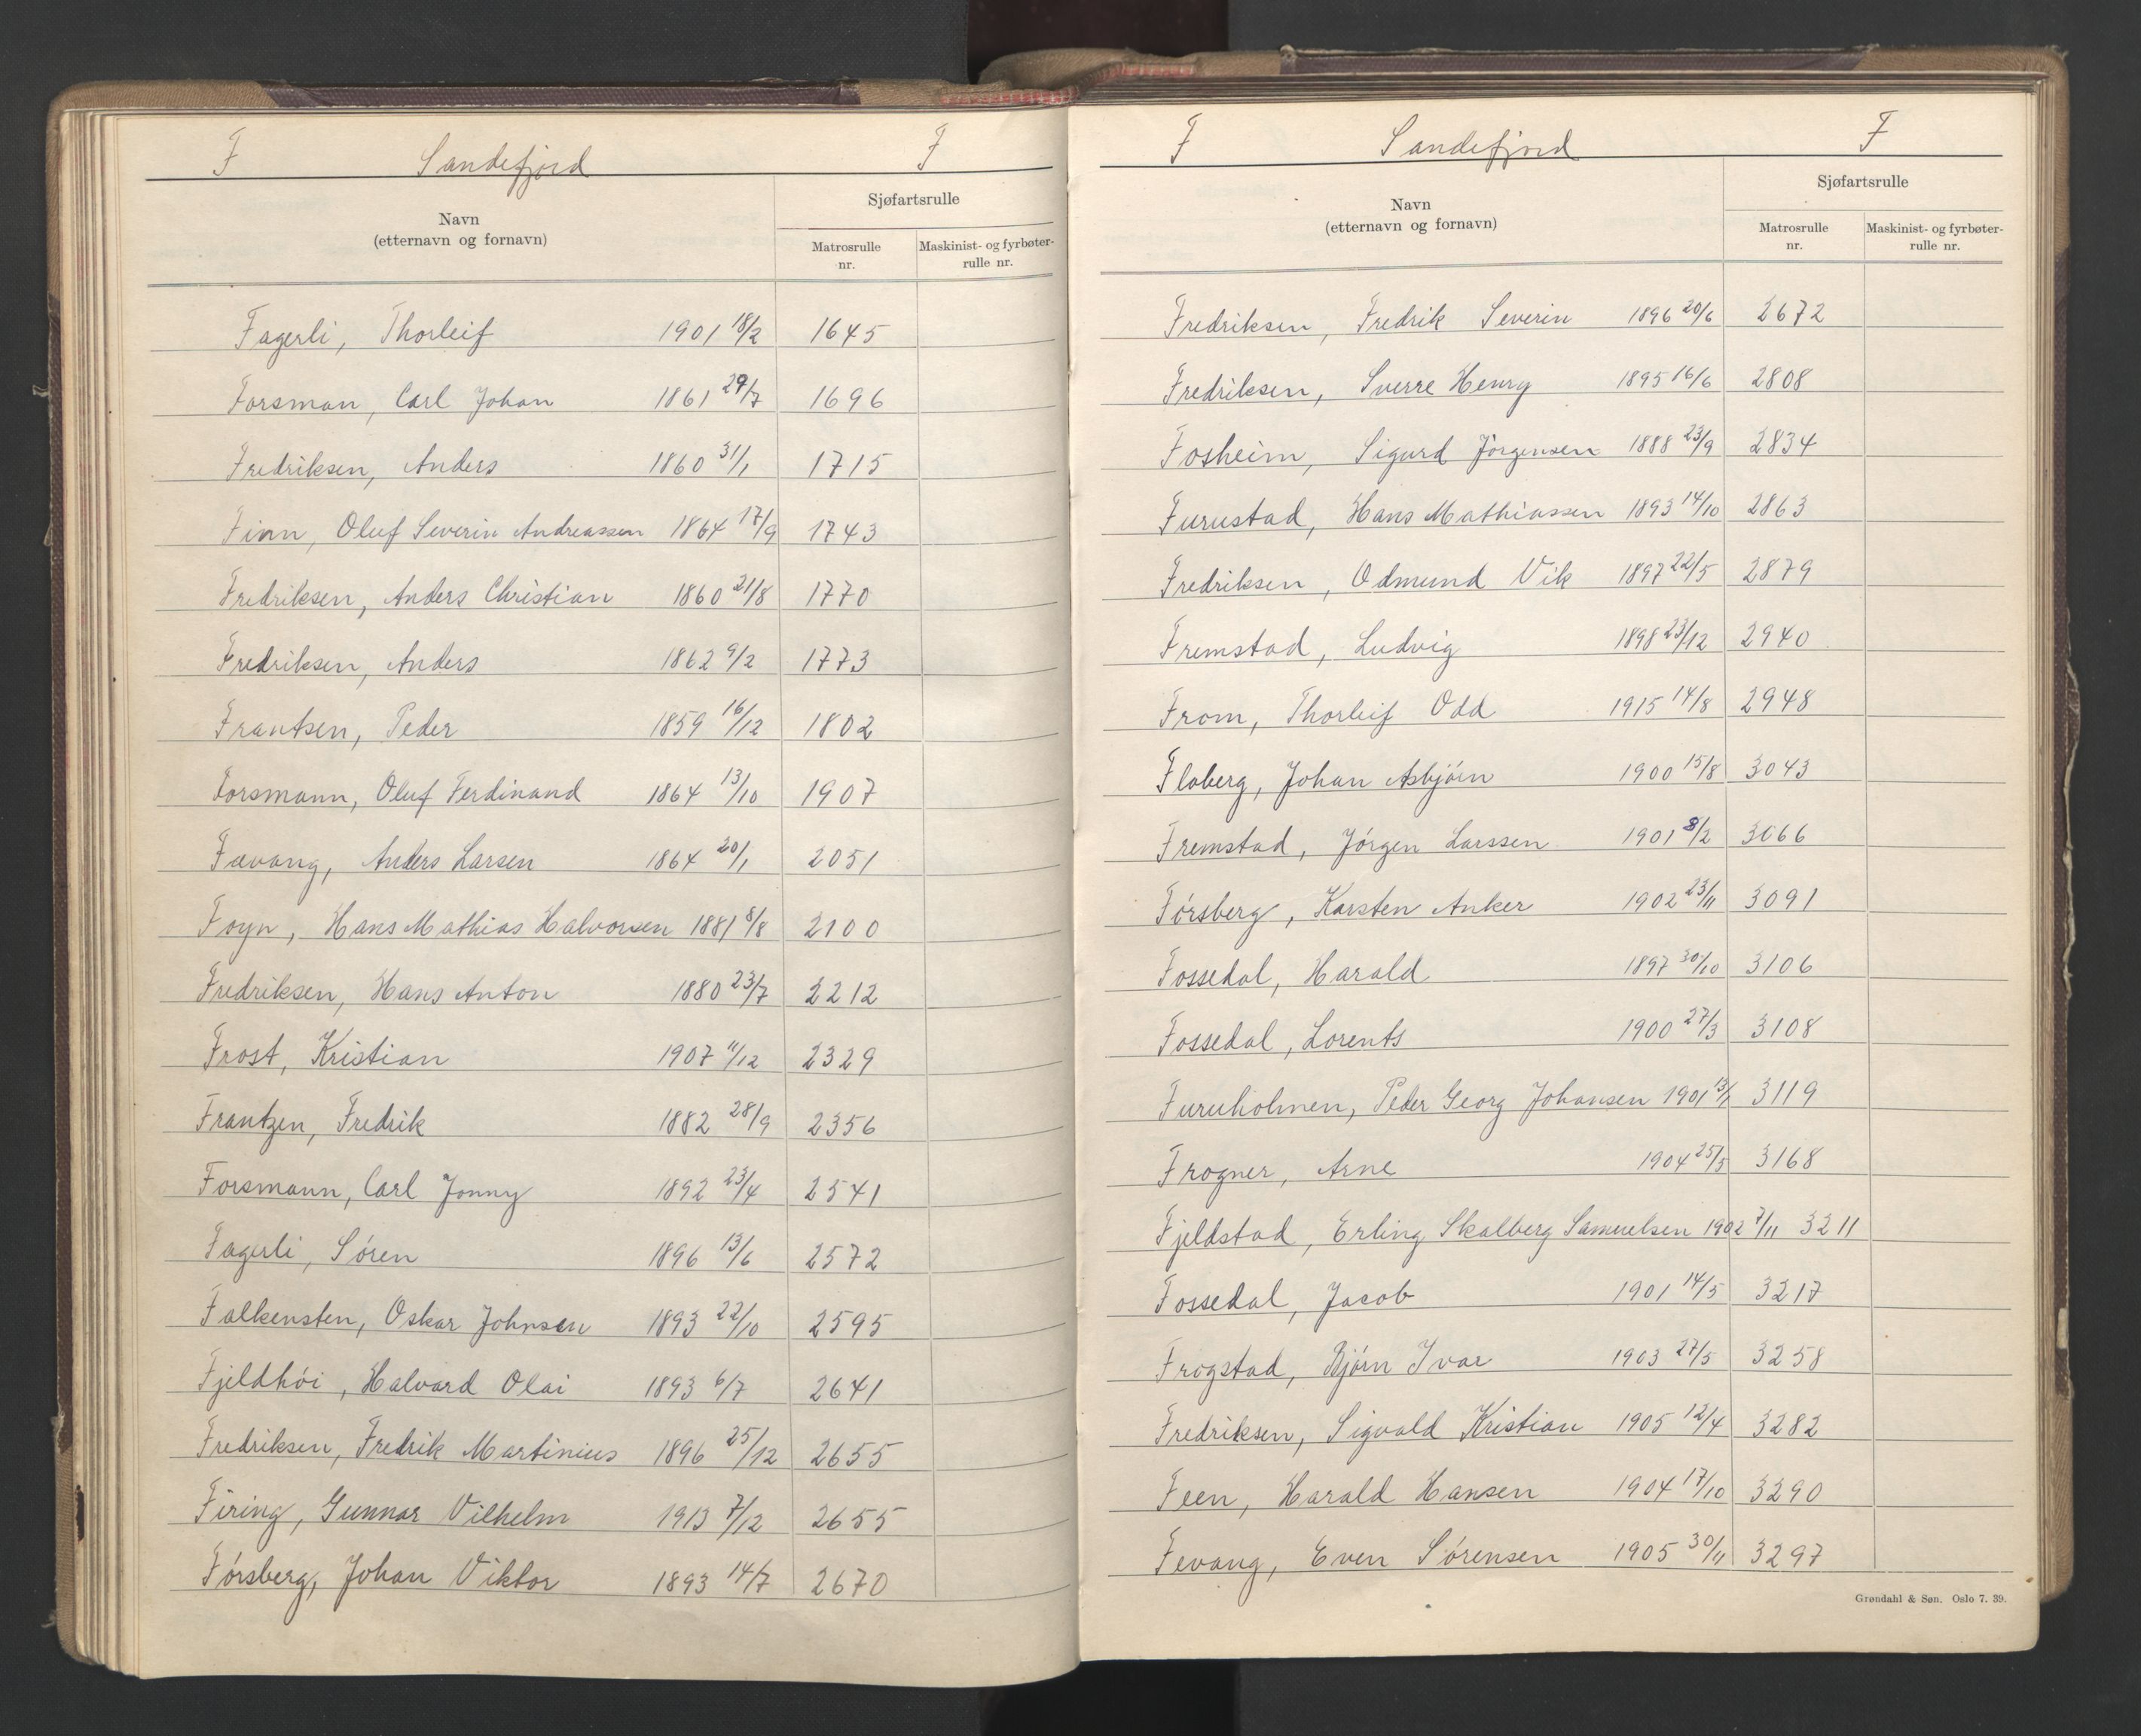 F Sandefjord F
Navn
(etternavn og fornavn)
Sjøfartsrulle
Matrosrulle
nr.
Maskinist- og fyrbøter-
rulle nr.
Fagerli, Thorleif 1901 18/2 1645
Forsman, Carl Johan 1861 29/7 1696
Fredriksen, Anders 1860 31/1 1715
Finn, Oluf Severin Andreassen 1864 17/9 1743
Fredriksen, Anders Christian 1860 21/8 1770
Fredriksen, Anders 1862 9/2 1773
Frantsen, Peder 1859 16/12 1802
Forsmann, Oluf Ferdinand 1864 13/10 1907
Fævang, Anders Larsen 1864 20/1 2051
Foyn, Hans Mathias Halvorsen 1881 8/8 2100
Fredriksen, Hans Anton 1880 23/7 2212
Frost, Kristian 1907 11/12 2329
Frantzen, Fredrik 1882 28/9 2356
Forsmann, Carl Jonny 1892 23/4 2541
Fagerli, Søren 1896 13/6 2572
Falkensten, Oskar Johnsen 1893 22/10 2595
Fjeldhöi, Halvard Olai 1893 6/7 2641
Fredriksen, Fredrik Martinius 1896 25/12 2655
Firing, Gunnar Vilhelm 1913 7/12 2655
Førsberg, Johan Viktor 1893 14/7 2670
F Sandefjord F
Navn
(etternavn og fornavn)
Sjøfartsrulle
Matrosrulle
nr.
Maskinist- og fyrbøter-
rulle nr.
Fredriksen, Fredrik Severin 1896 20/6 2672
Fredriksen, Sverre Henry 1895 16/6 2808
Fosheim, Sigurd Jörgensen 1888 23/9 2834
Furustad, Hans Mathiassen 1893 14/10 2863
Fredriksen, Odmund Vik 1897 22/5 2879
Fremstad, Ludvig 1898 23/12 2940
From, Thorleif Odd 1915 14/8 2948
Floberg, Johan Asbjørn 1900 15/8 3043
Fremstad, Jørgen Larssen 1901 8/2 3066
Førsberg, Karsten Anker 1902 23/11 3091
Fossedal, Harald 1897 30/10 3106
Fossedal, Lorents 1900 27/3 3108
Furuholmen, Peder Georg Johansen 1901 13/1 3119
Frogner, Arne 1904 25/5 3168
Fjeldstad, Erling Skalberg Samuelsen 1902 7/11 3211
Fossedal, Jacob 1901 14/5 3217
Frogstad, Bjørn Ivar 1903 27/5 3258
Fredriksen, Sigvald Kristian 1905 12/4 3282
Feen, Harald Hansen 1904 17/10 3290
Fevang, Even Sørensen 1905 30/11 3297
Grøndahl & Søn. Oslo 7. 39.